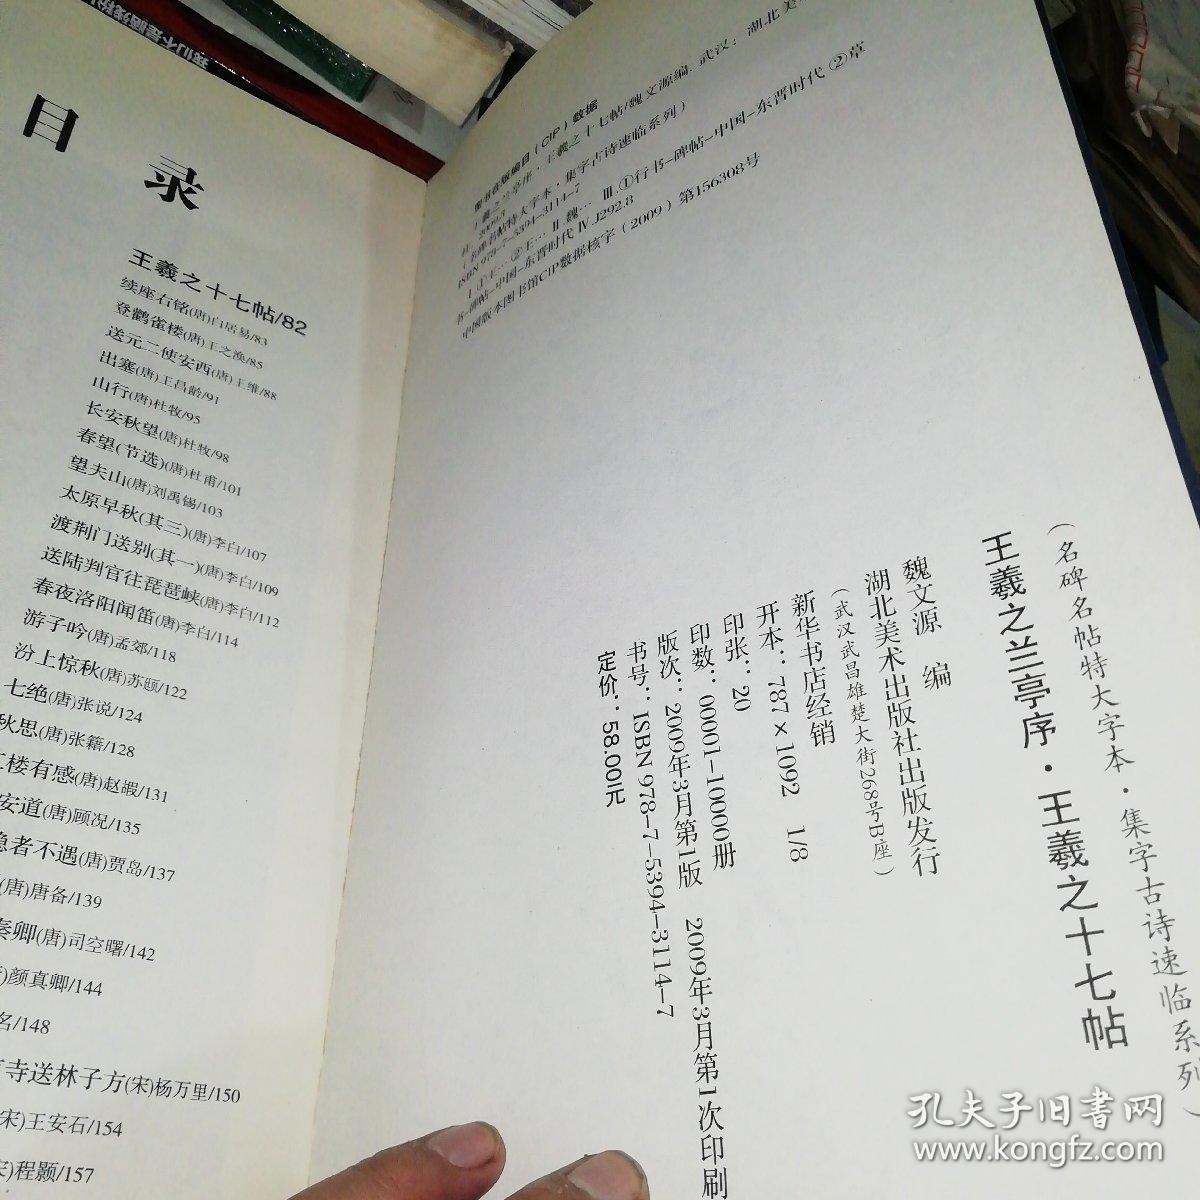 目 录
王羲之十七帖/82
续座右铭(唐)白居易/83
登鹳雀楼(唐)王之涣/85
送元二使安西(唐)王维/88
出塞(唐)王昌龄/91
山行(唐)杜牧/95
长安秋望(唐)杜牧/98
春望(节选)(唐)杜甫/101
望夫山(唐)刘禹锡/103
太原早秋(其三)(唐)李白/107
渡荆门送别(其一)(唐)李白/109
送陆判官往琵琶峡(唐)李白/112
春夜洛阳闻笛(唐)李白/114
游子吟(唐)孟郊/118
汾上惊秋(唐)苏颋/122
七绝(唐)张说/124
秋思(唐)张籍/128
楼有感(唐)赵嘏/131
安道(唐)顾况/135
隐者不遇(唐)贾岛/137
(唐)唐备/139
秦卿(唐)司空曙/142
)颜真卿/144
名/148
寺送林子方(宋)杨万里/150
宋)王安石/154
)程颢/157
图书在版编目（CIP）数据
王羲之兰亭序·王羲之十七帖/魏文源编. 武汉：湖北美
社，2009.3
（名碑名帖特大字本·集字古诗速临系列）
ISBN 978-7-5394-3114-7
Ⅰ①王… ②王… Ⅱ.魏… Ⅲ.①行书-碑帖-中国-东晋时代 ②草
书-碑帖-中国-东晋时代 Ⅳ.J292.8
中国版本图书馆CIP数据核字（2009）第156308号
（名碑名帖特大字本·集字古诗速临系列）
王羲之兰亭序·王羲之十七帖
魏文源 编
湖北美术出版社出版发行
（武汉武昌雄楚大街268号B座）
新华书店经销
开本：787×1092 1/8
印张：20
印数：00001-10000册
版次：2009年3月第1版 2009年3月第1次印刷
书号：ISBN 978-7-5394-3114-7
定价：58.00元
孔夫子旧书网
www.kongfz.com